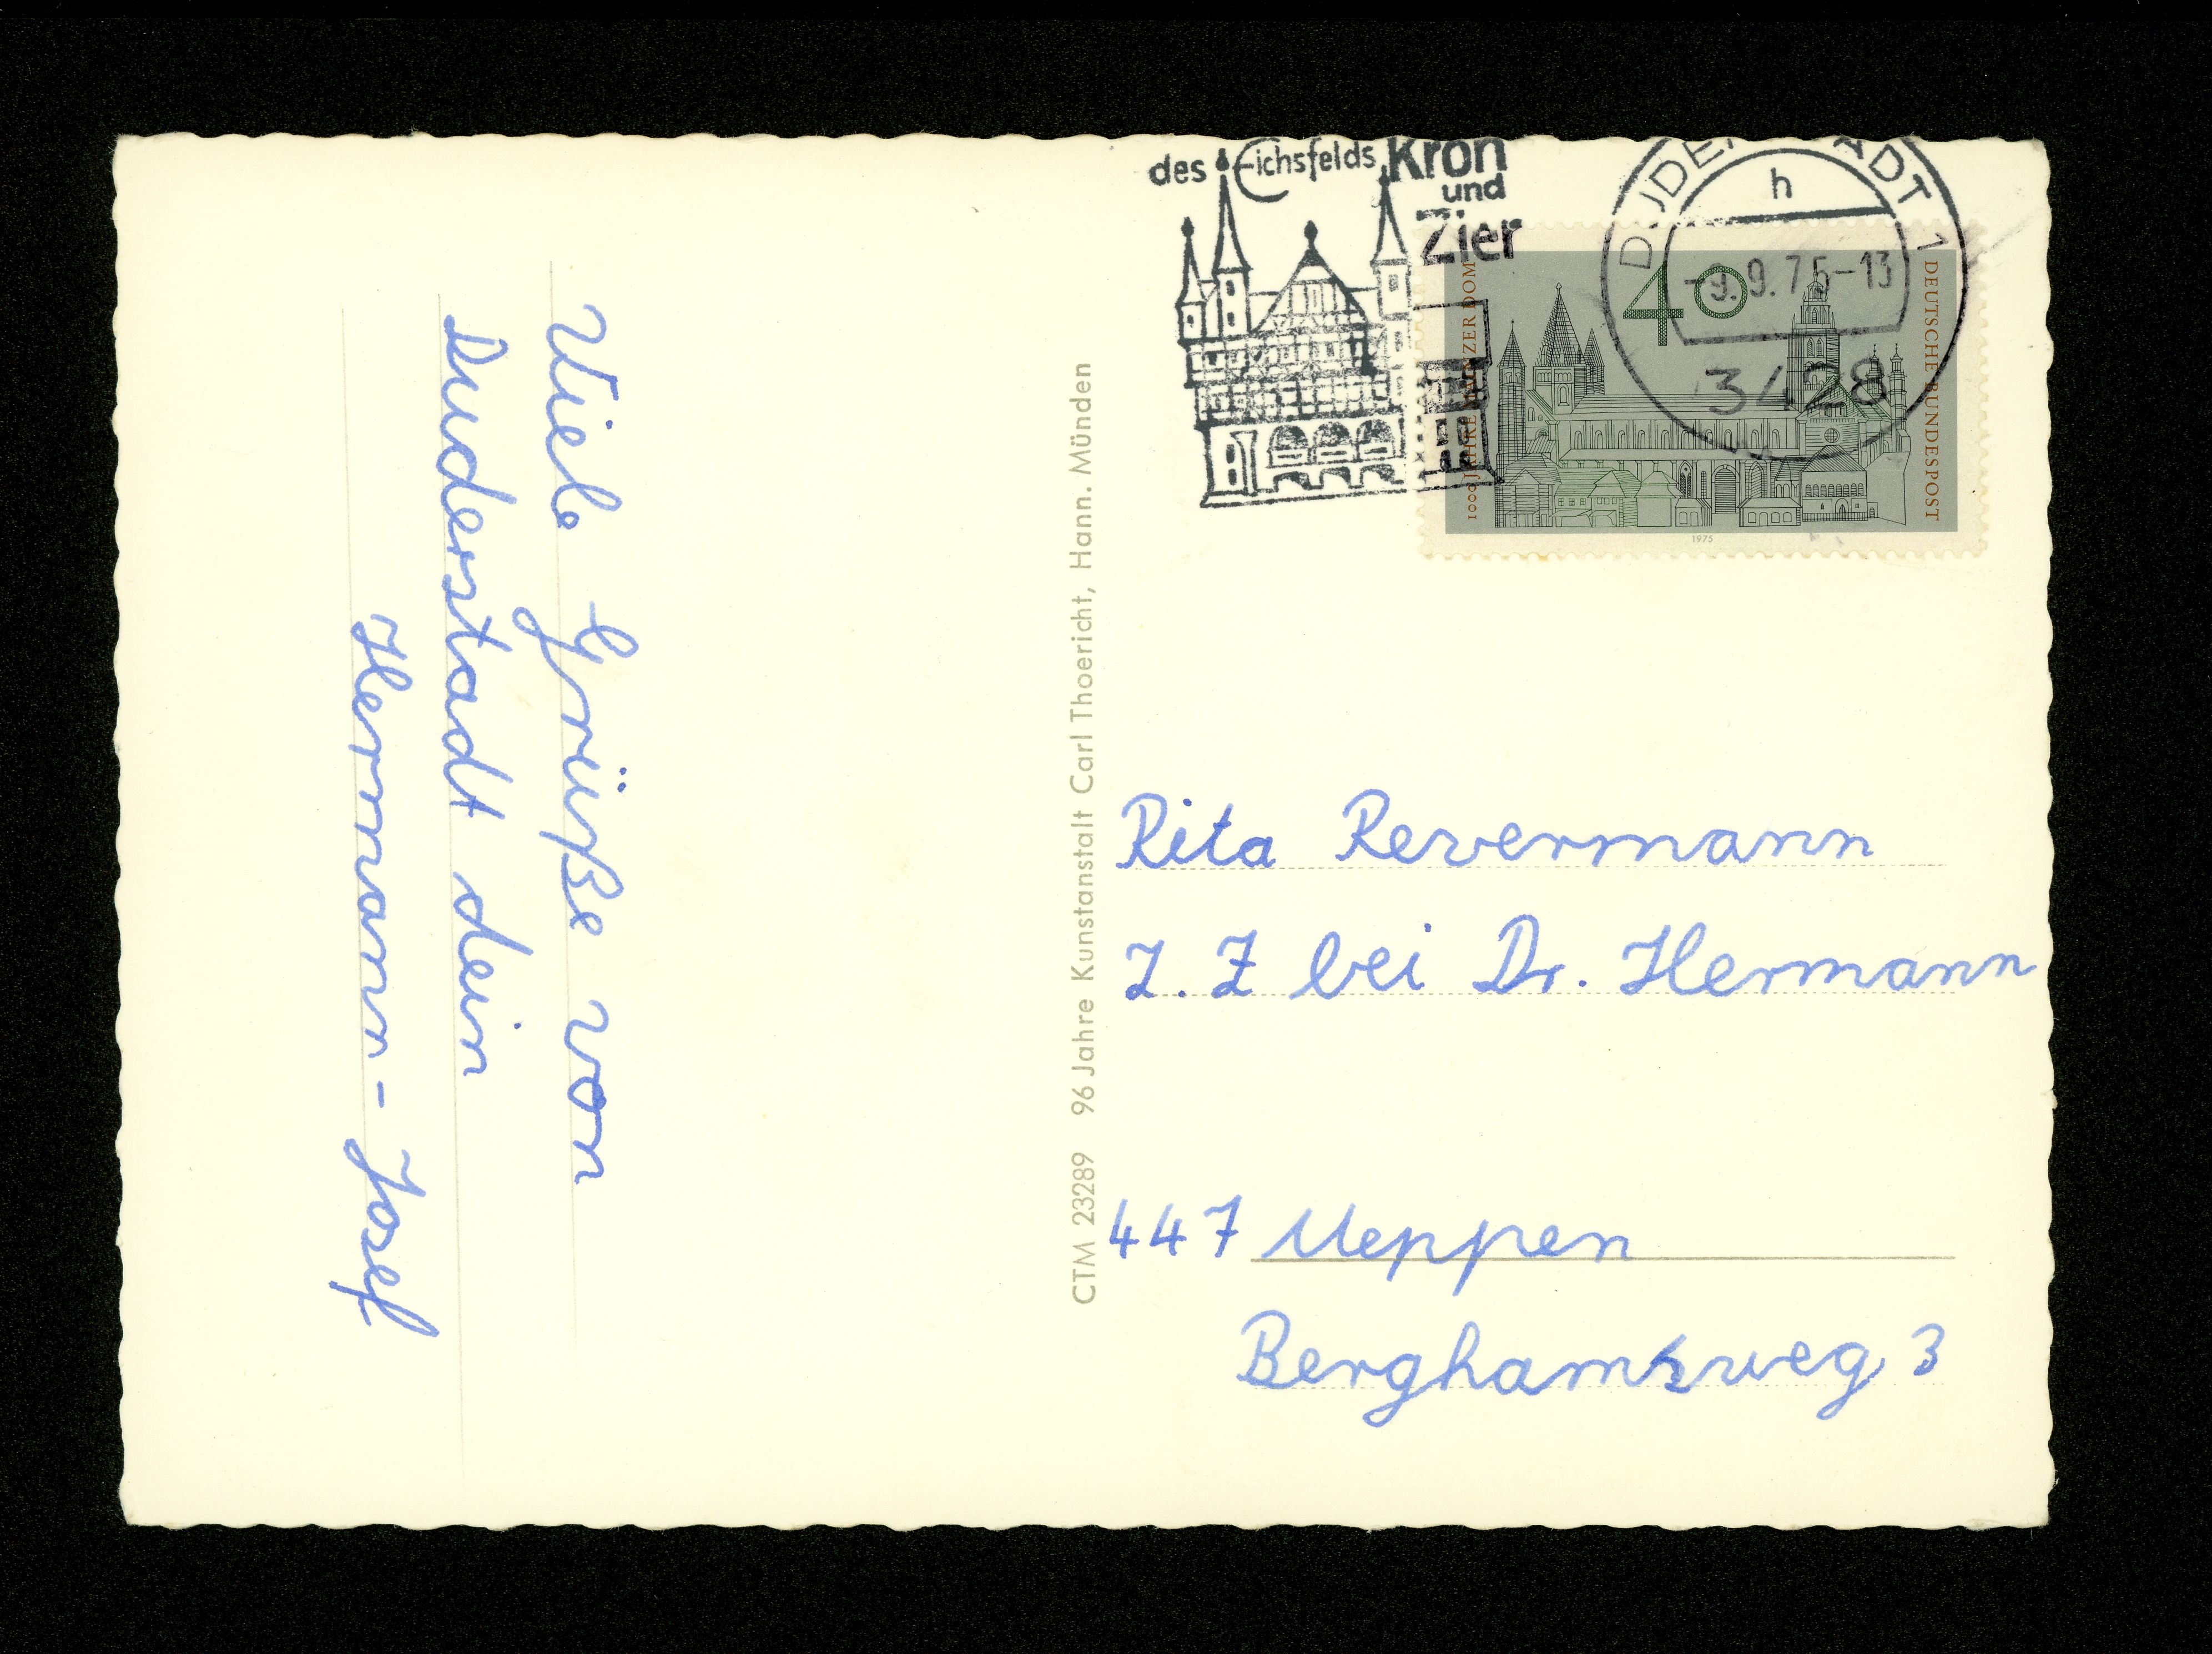 Viele Grüße von
Duderstadt dein
Hermann - Josef
CTM 23289 96 Jahre Kunstanstalt Carl Thoericht, Hann. Münden
des Eichsfelds Kron
und
Zier
DUDERSTADT 1
h
-9.9.75-13
3428
40
1000 JAHRE MAINZER DOM
DEUTSCHE BUNDESPOST
1975
Rita Revermann
Z. Z bei Dr. Hermann
447 Meppen
Berghamsweg 3